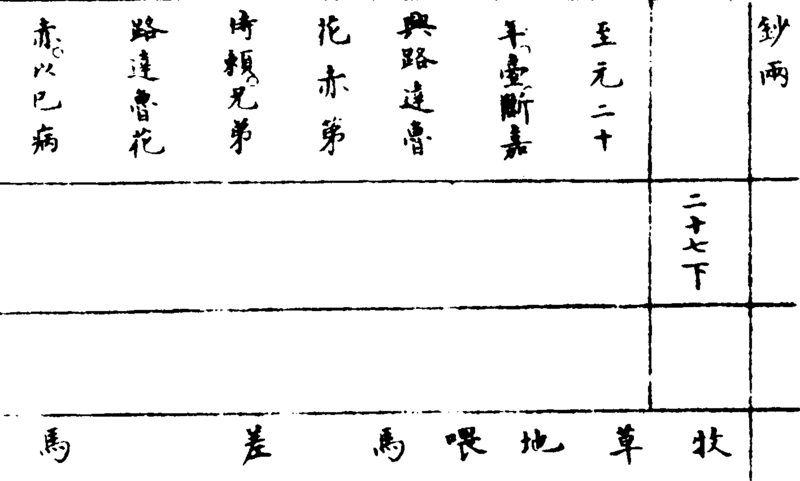 鈔兩
二十七下
至元二十
年壹斷嘉
興路達魯
花赤第
倚賴兄弟
路達魯花
赤以已病
牧草地喂馬差馬